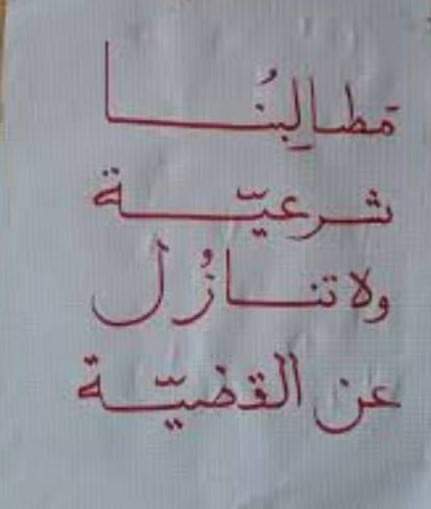 مطالبُنا
شرعيّة
ولا تنازُل
عن القضيّة